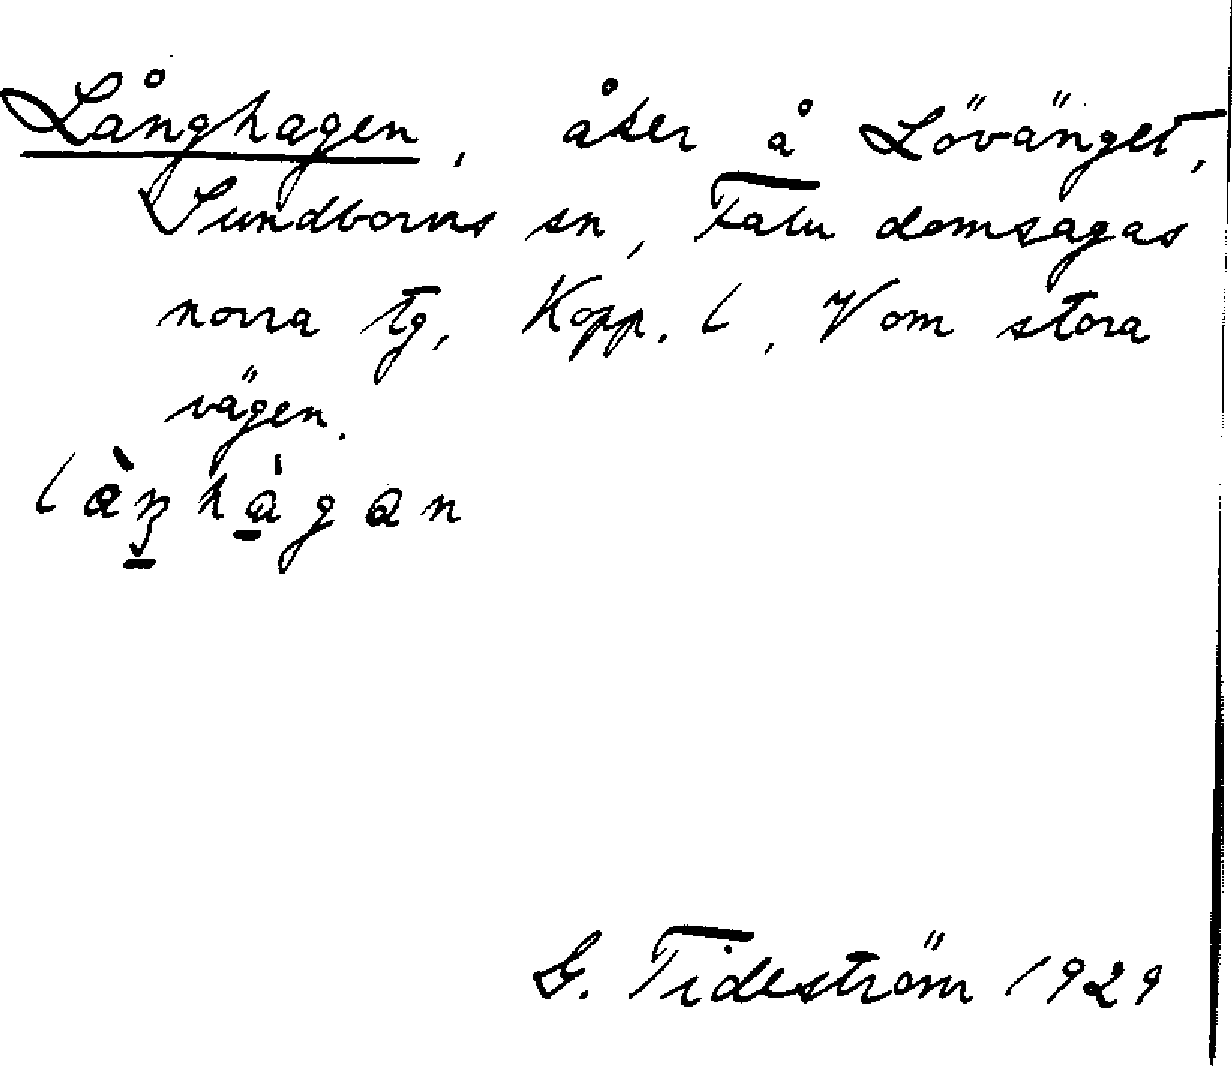 Långhagen, åker å Lövänget,
Sundborns sn, Falu domsagas
norra tg, Kopp. l, V om stora
vägen.
G. Tideström 1929